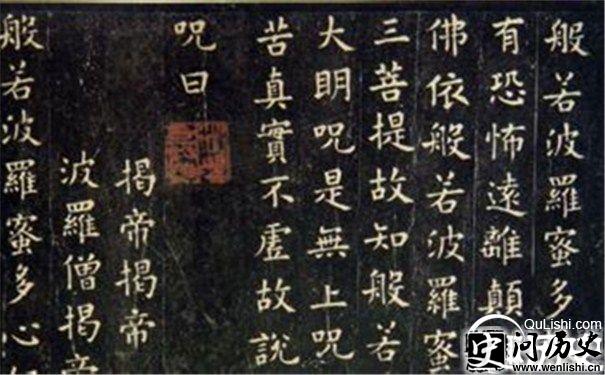 般若波羅蜜多
有恐怖遠離顛
佛依般若波羅蜜
三菩提故知般若
大明呪是無上呪
苦真實不虛故說
呪曰
揭帝揭帝
波羅僧揭帝
般若波羅蜜多心
QuLishi.com
问历史
www.wenlishi.com